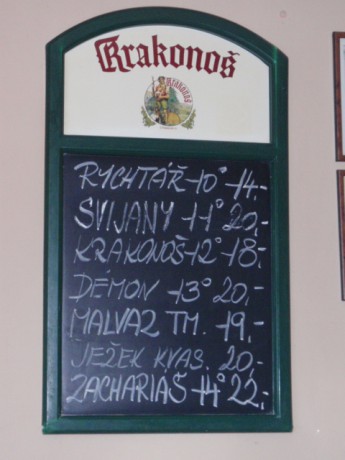 Krakonoš
RYCHTÁŘ-10° 14.-
SVIJANY 11° 20,-
KRAKONOŠ-12° 18,-
DÉMON -13° 20,-
MALVAZ TM. -19,-
JEŽEK KVAS. 20,-
ZACHARIÁŠ 14° 22,-